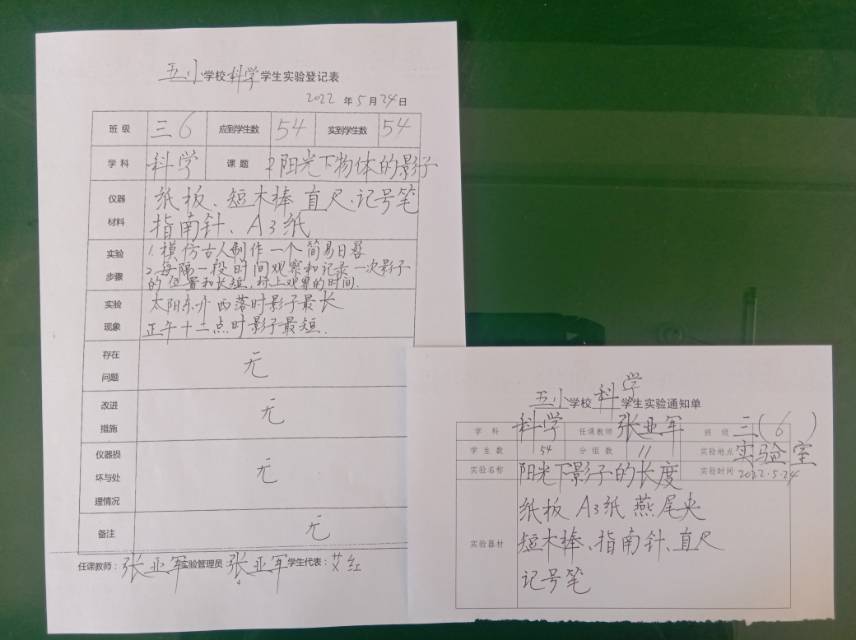 五小学校科学学生实验登记表
2022年5月24日
班级 三6 应到学生数 54 实到学生数 54
学科 科学 课题 2阳光下物体的影子
仪器材料 纸板、短木棒 直尺、记号笔
指南针、A3纸
实验步骤 1.模仿古人制作一个简易日晷
2.每隔一段时间观察和记录一次影子
的位置和长短,标上观察的时间.
实验现象 太阳东升西落时影子最长
正午十二点时影子最短.
存在问题 无
改进措施 无
仪器损坏与处理情况 无
备注 无
任课教师:张亚军 实验管理员 张亚军 学生代表:艾红
五小学校科学学生实验通知单
学科 科学 任课教师 张亚军 班级 三(6)
学生数 54 分组数 11 实验地点 实验室
实验名称 阳光下影子的长度 实验时间 2022.5.24
实验器材 纸板 A3纸 燕尾夹
短木棒、指南针、直尺
记号笔